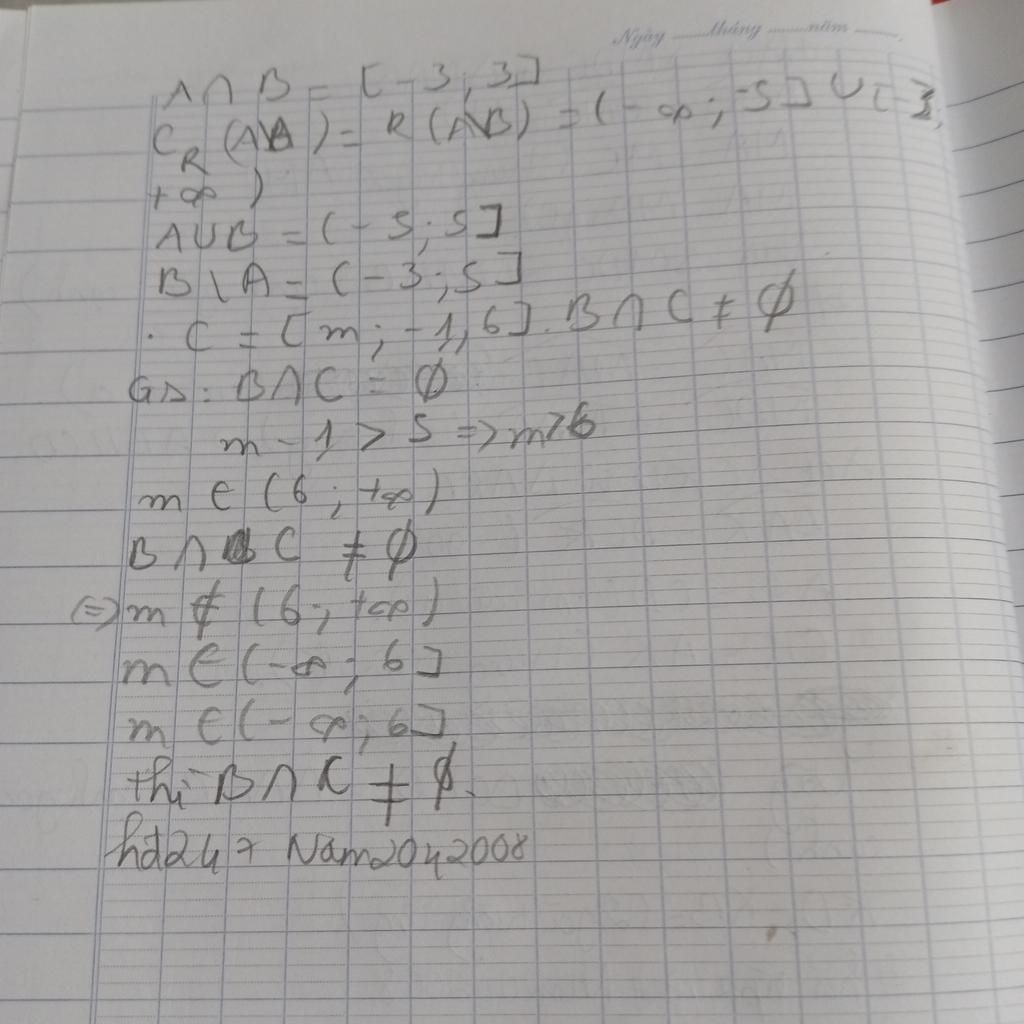 Ngày ........ tháng ........ năm ........
A ∩ B = [ - 3 , 3 ]
C_R (A\B) = R (A\B) = (- ∞ ; -5 ] ∪ [ -3;
+ ∞ )
A ∪ B = ( - 5 ; 5 ]
B \ A = ( - 3 ; 5 ]
. C = [ m ; - 1 , 6 ] . B ∩ C ≠ ∅
GS : B ∩ C = ∅
m - 1 > 5 => m > 6
m ∈ ( 6 ; +∞ )
B ∩ C ≠ ∅
(=) m ∉ ( 6 ; +∞ )
m ∈ ( -∞ ; 6 ]
m ∈ ( - ∞ ; 6 ]
thì B ∩ C ≠ ∅.
hd247 Nam2042008